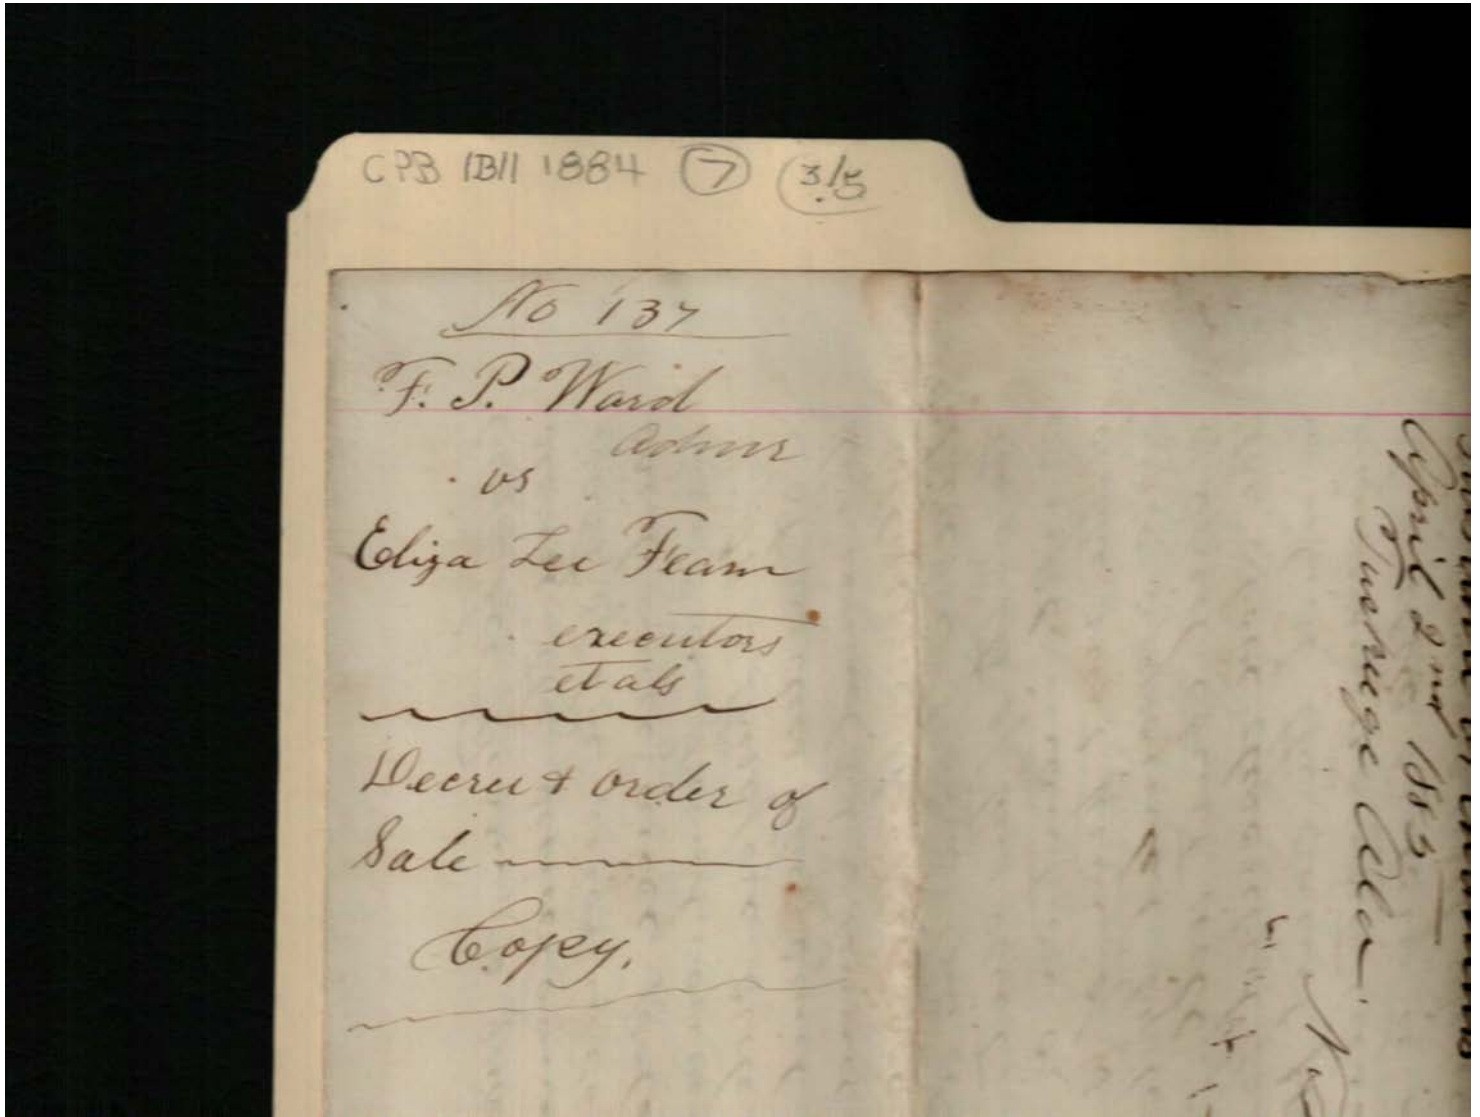 CPB 1B11 1884 7 3/5
No 137
F. P. Ward
admr
vs
Eliza Lee Fearn
executors
et als
Decree & order of
Sale
Copy.
April 2nd 1885
Tuskege Ala.